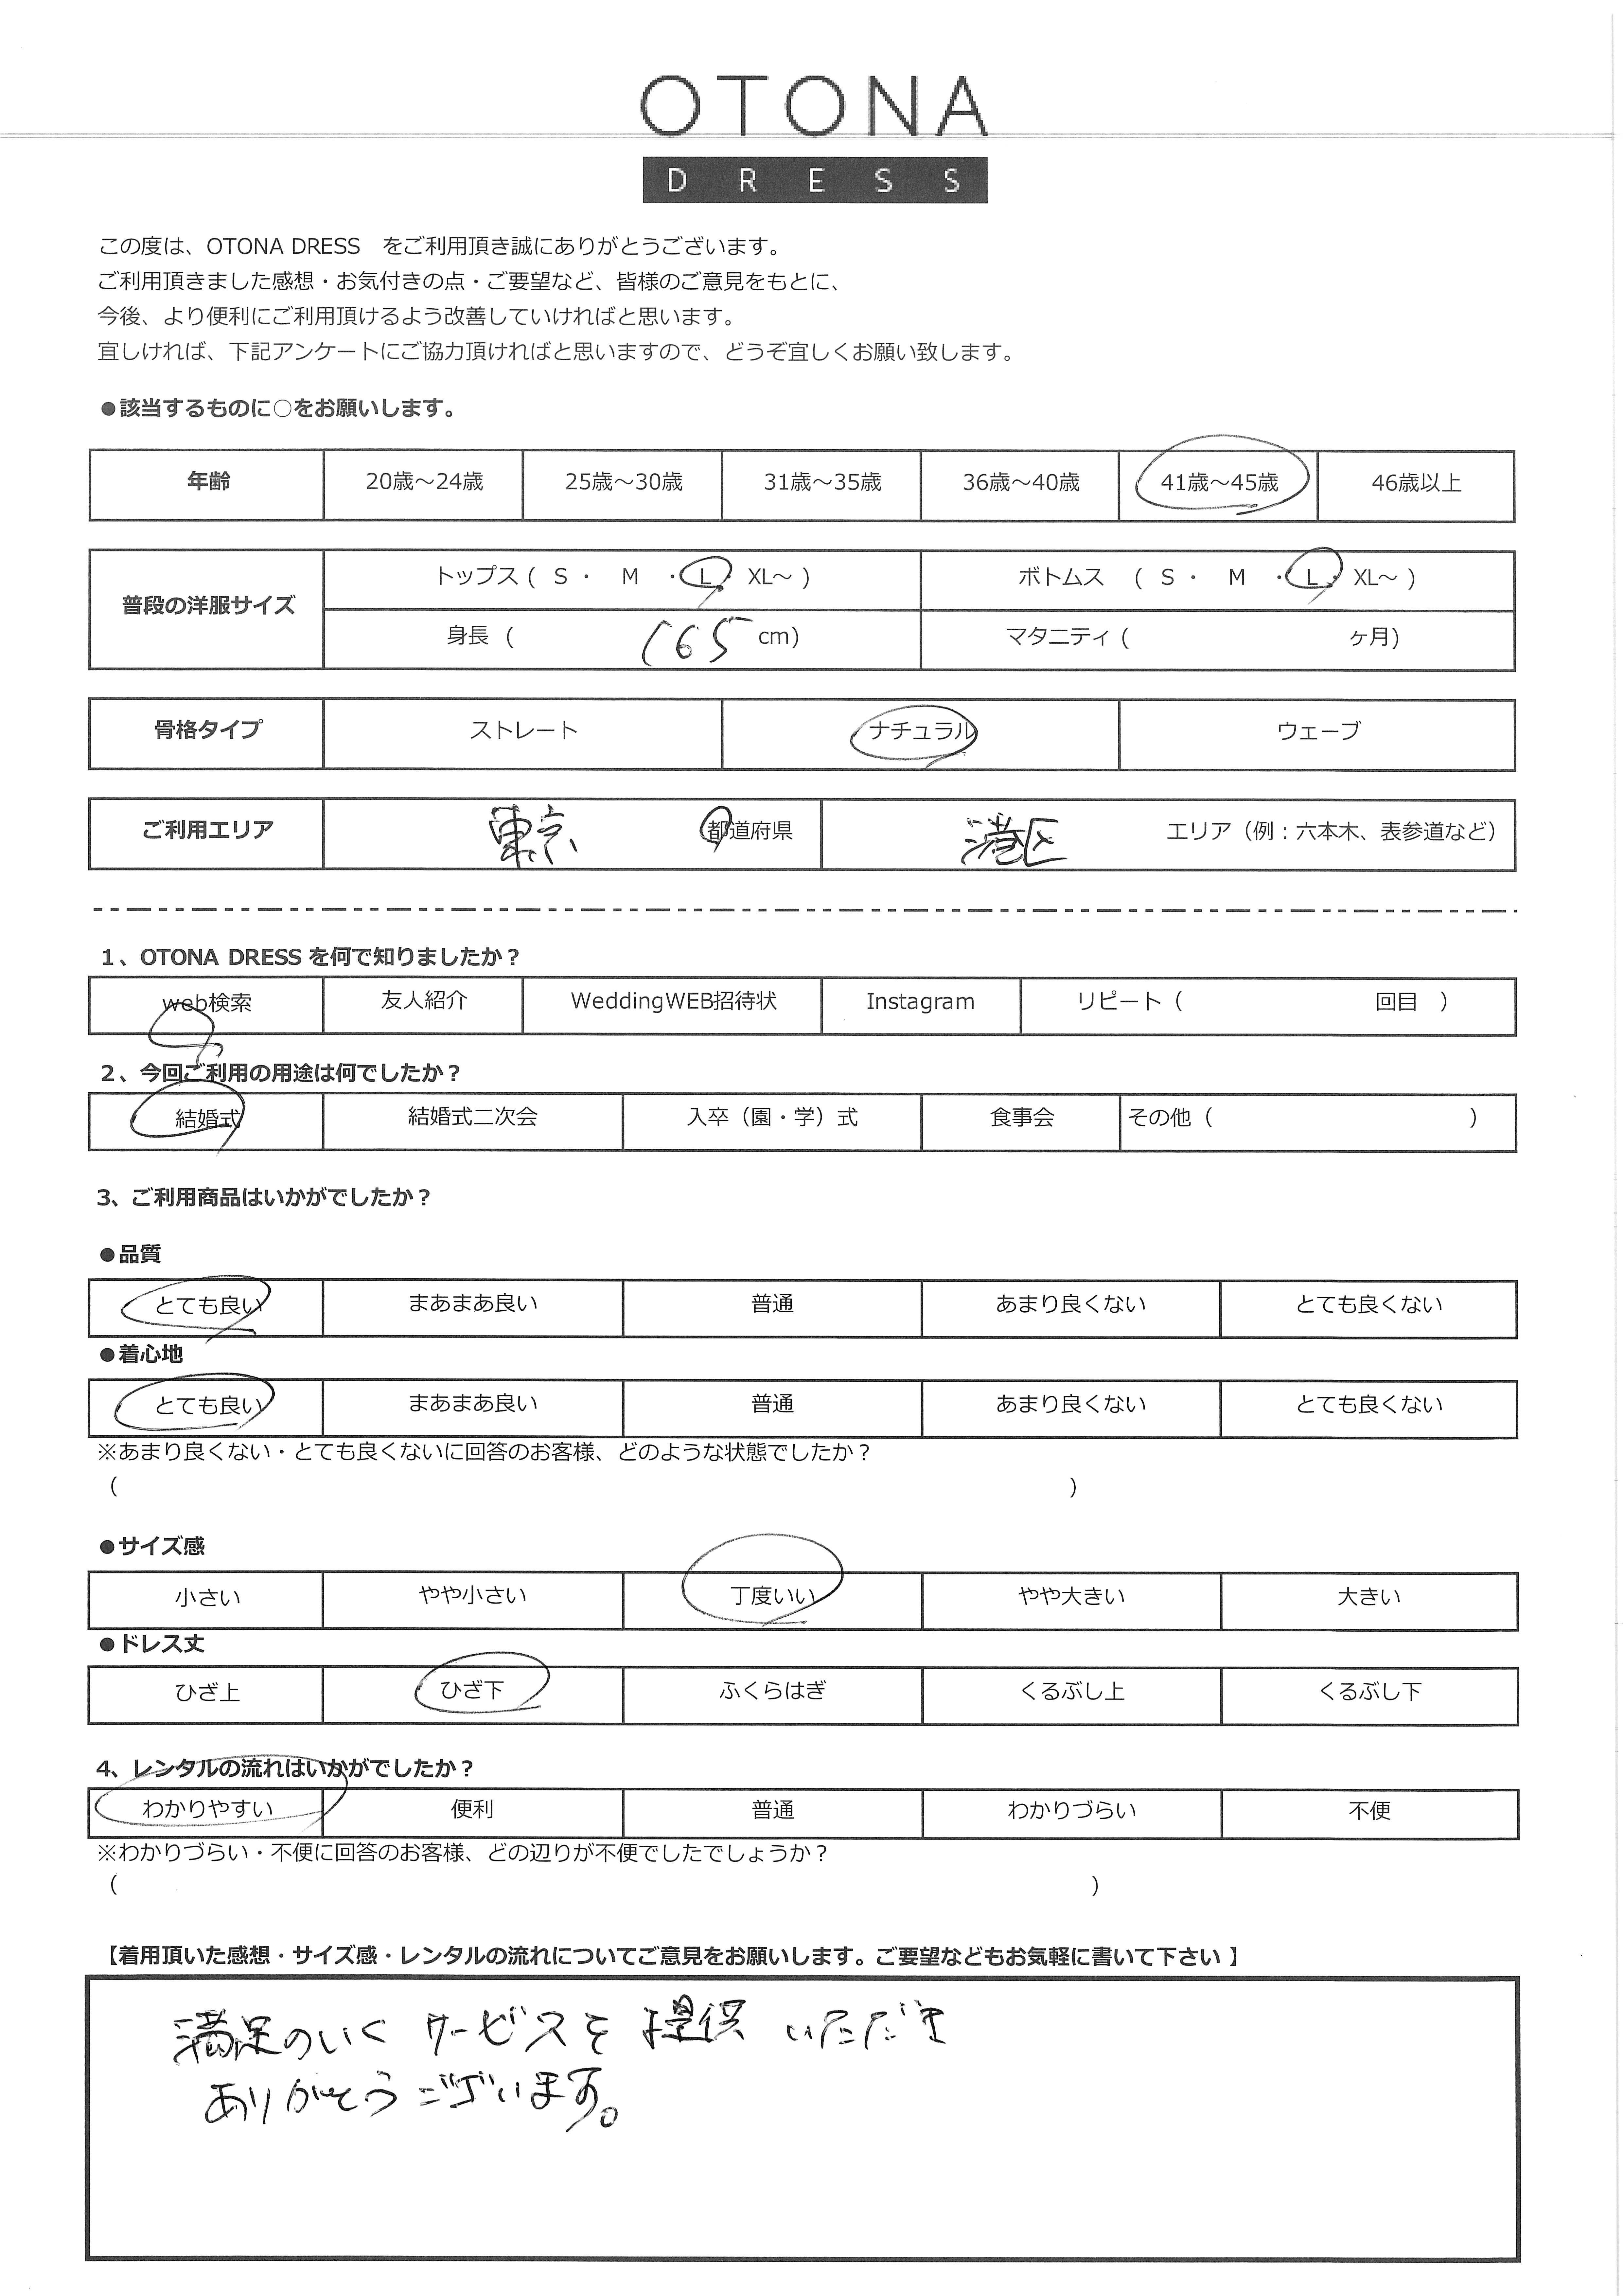 OTONA
DRESS
この度は、OTONA DRESS　をご利用頂き誠にありがとうございます。
ご利用頂きました感想・お気付きの点・ご要望など、皆様のご意見をもとに、
今後、より便利にご利用頂けるよう改善していければと思います。
宜しければ、下記アンケートにご協力頂ければと思いますので、どうぞ宜しくお願い致します。
●該当するものに○をお願いします。
年齢 20歳～24歳 25歳～30歳 31歳～35歳 36歳～40歳 41歳～45歳 46歳以上
普段の洋服サイズ
トップス ( S ・ M ・ L ・ XL～ ) ボトムス ( S ・ M ・ L ・ XL～ )
身長 ( 165 cm) マタニティ ( ヶ月)
骨格タイプ ストレート ナチュラル ウェーブ
ご利用エリア 東京 都道府県 港区 エリア（例：六本木、表参道など）
1、OTONA DRESS を何で知りましたか？
web検索 友人紹介 WeddingWEB招待状 Instagram リピート（ 回目 ）
2、今回ご利用の用途は何でしたか？
結婚式 結婚式二次会 入卒（園・学）式 食事会 その他（ ）
3、ご利用商品はいかがでしたか？
●品質
とても良い まあまあ良い 普通 あまり良くない とても良くない
●着心地
とても良い まあまあ良い 普通 あまり良くない とても良くない
※あまり良くない・とても良くないに回答のお客様、どのような状態でしたか？
（ ）
●サイズ感
小さい やや小さい 丁度いい やや大きい 大きい
●ドレス丈
ひざ上 ひざ下 ふくらはぎ くるぶし上 くるぶし下
4、レンタルの流れはいかがでしたか？
わかりやすい 便利 普通 わかりづらい 不便
※わかりづらい・不便に回答のお客様、どの辺りが不便でしたでしょうか？
（ ）
【着用頂いた感想・サイズ感・レンタルの流れについてご意見をお願いします。ご要望などもお気軽に書いて下さい 】
満足のいく サービスを 提供 いただき
ありがとうございます。